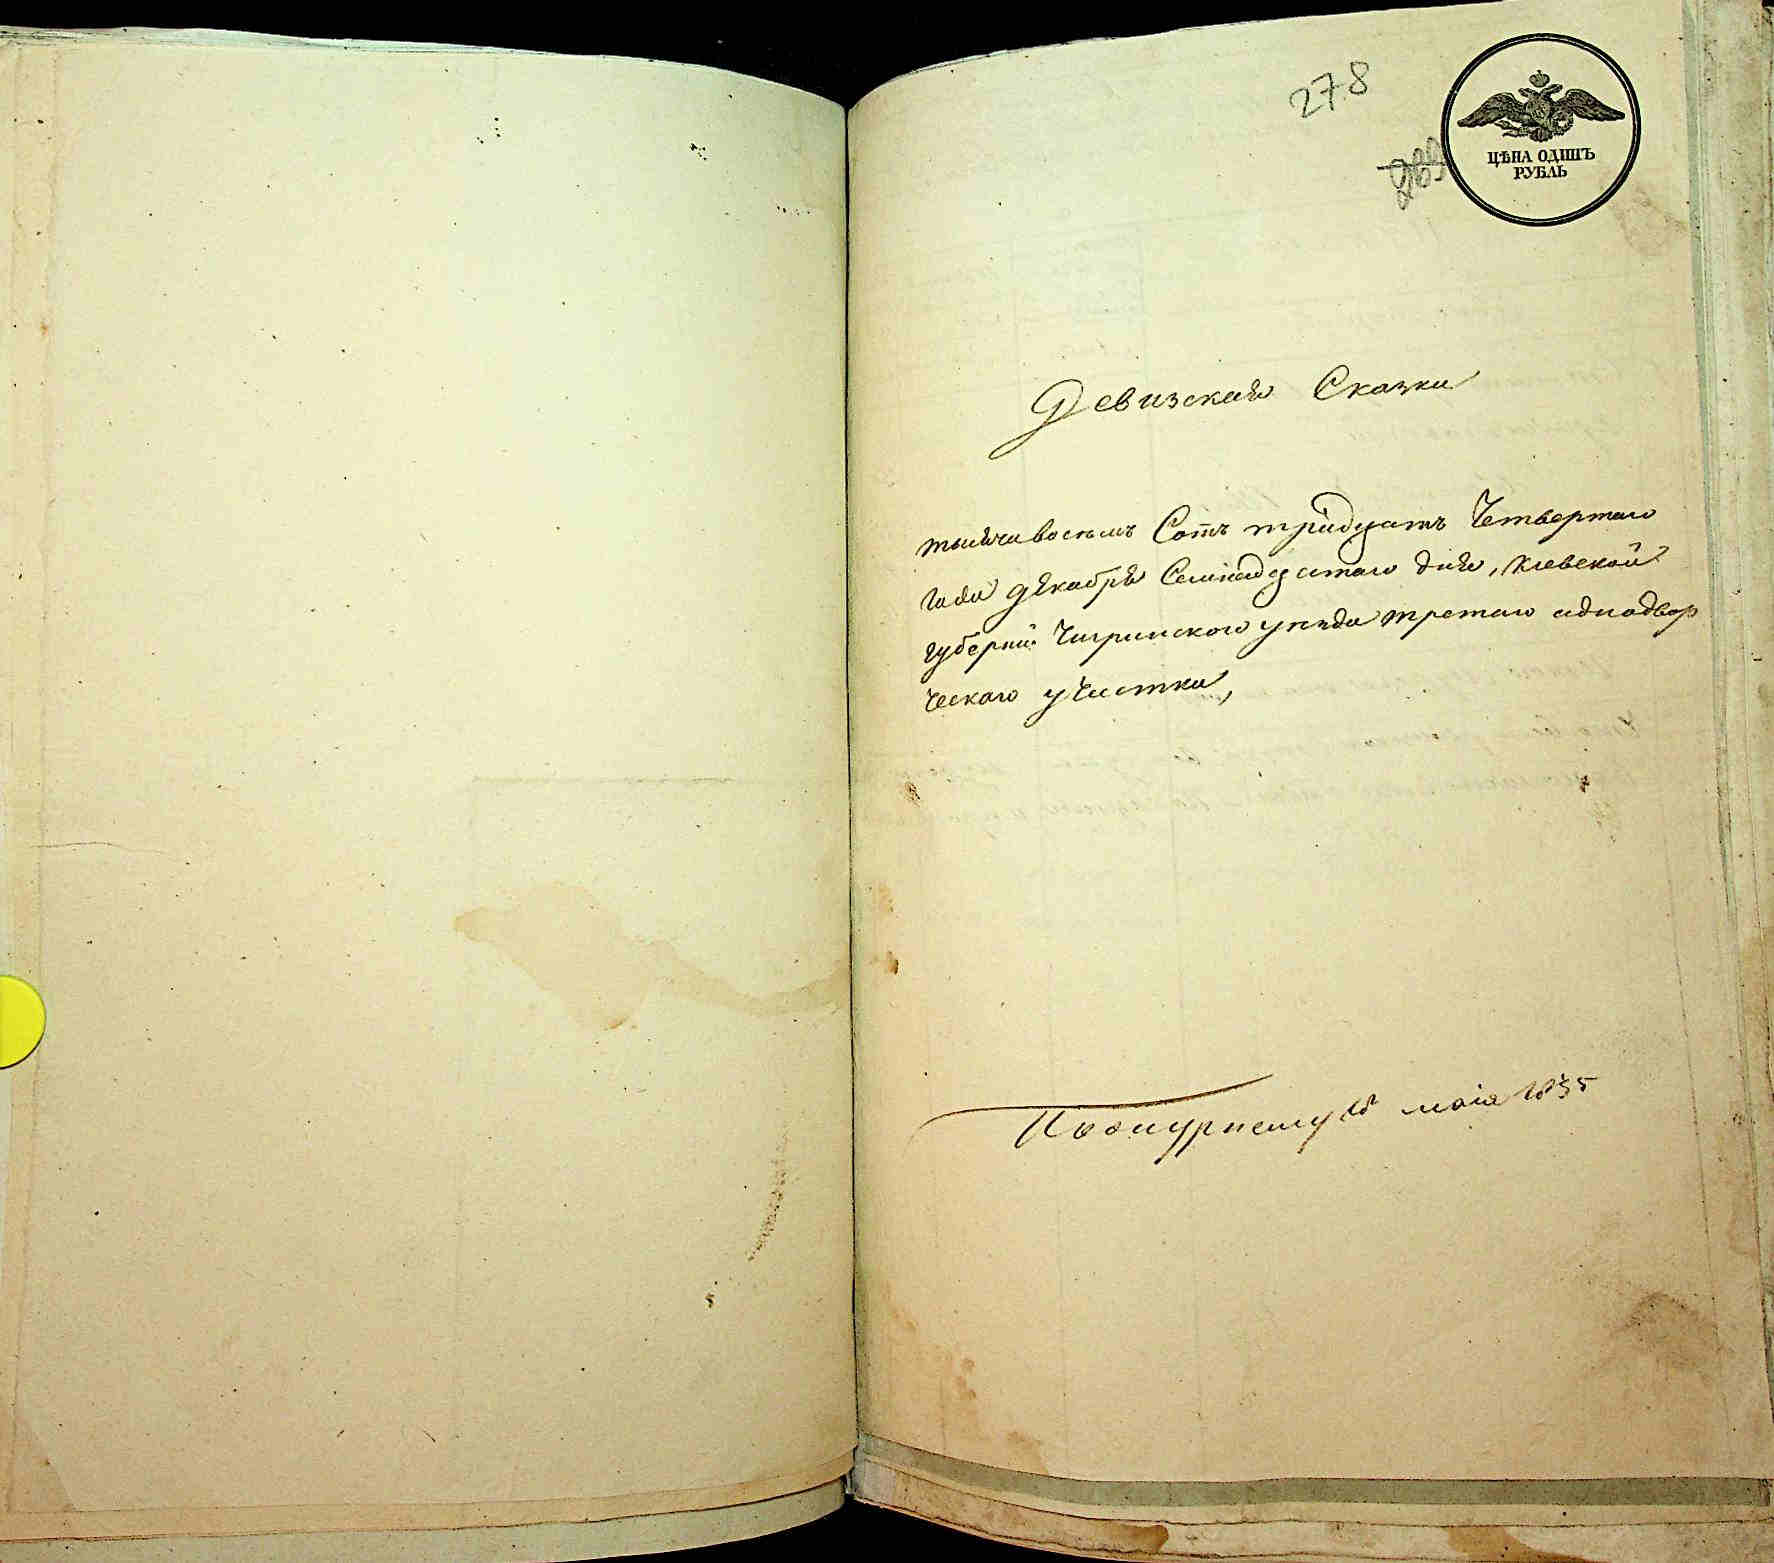 278
ЦѢНА ОДИНЪ
РУБЛЬ
Ревизская Сказка
тысяча восемь Сотъ тридцать Четвертаго
года декабря Семнадцатаго дня, Киевской
губернии Чигринского уезда третаго однодвор
ческаго участка,
маія 1835